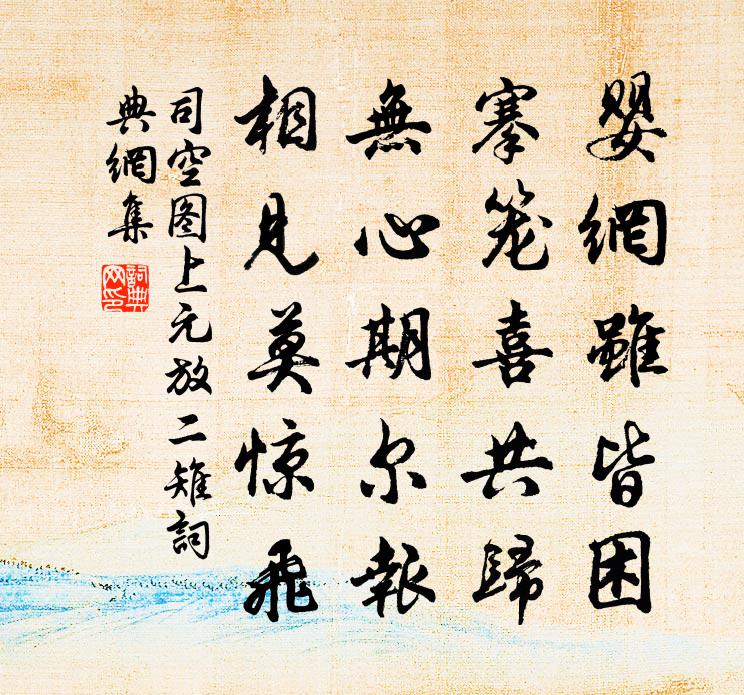 嬰網雖皆困
搴笼喜共歸
無心期尔報
相見莫惊飛
司空图上元放二雉詞
典網集
詞典网印